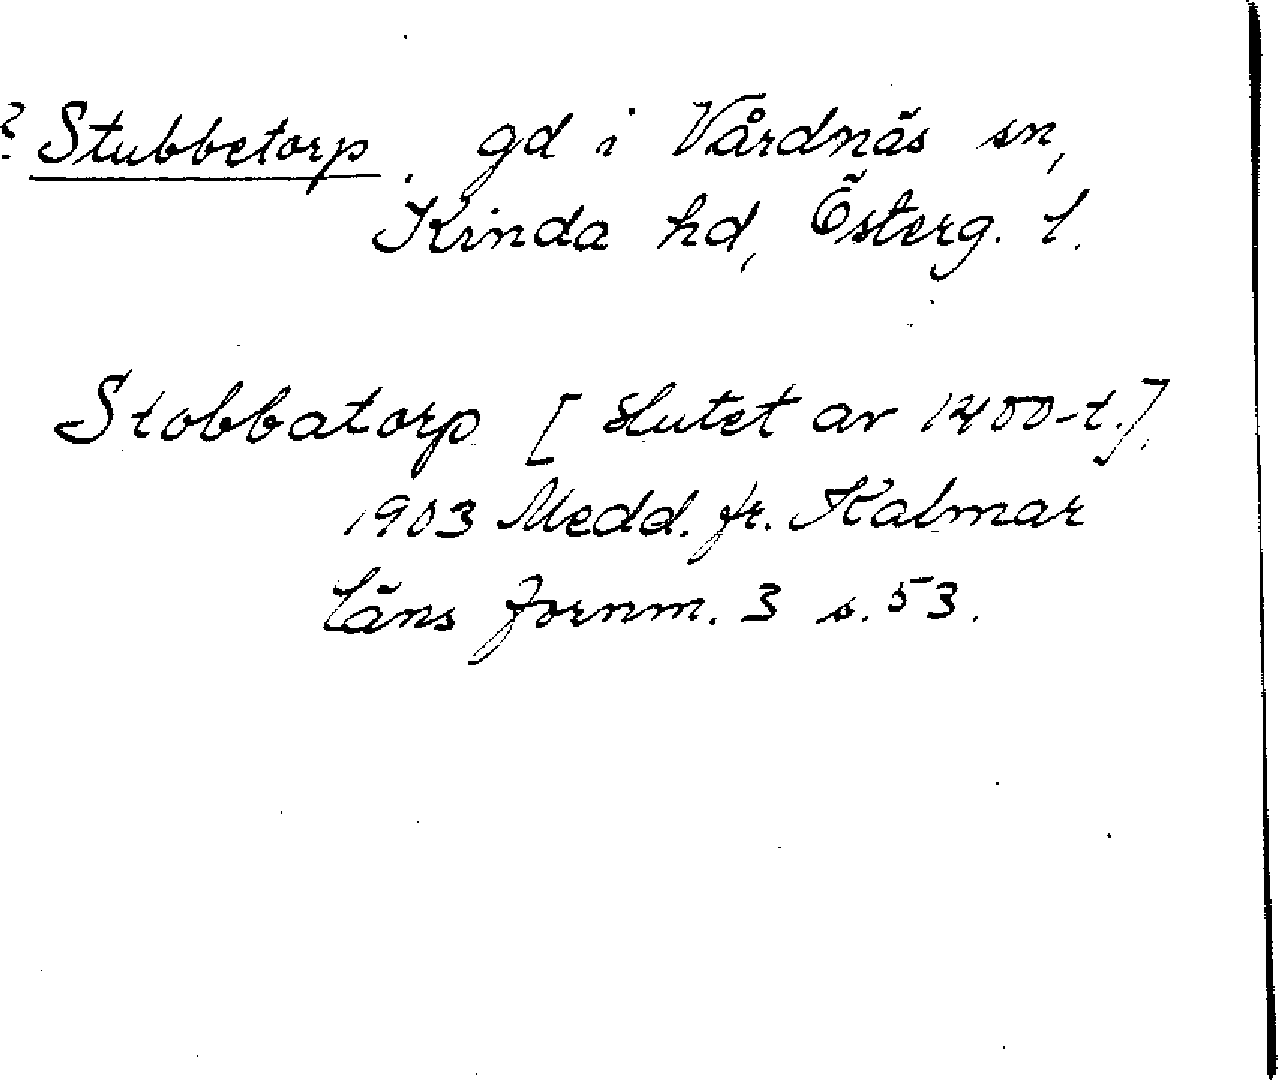 ? Stubbetorp. gd i Vårdnäs sn,
Kinda hd, Österg. l.
Stobbatorp [slutet av 1400-t.],
1903 Medd. fr. Kalmar
läns fornm. 3 s. 53.